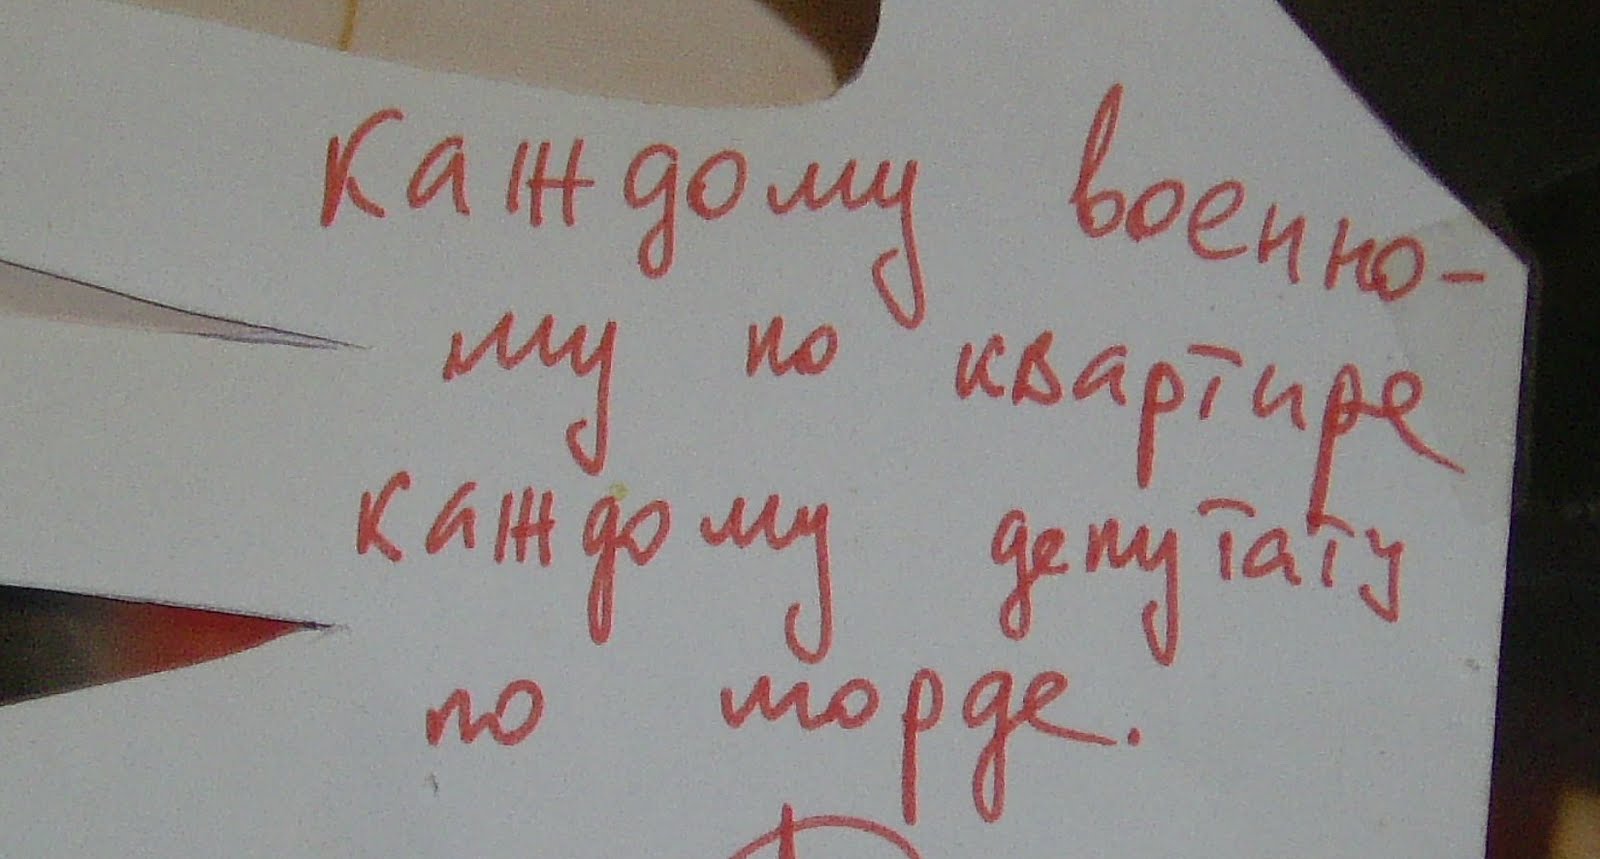 Каждому военно-
му по квартире
каждому депутату
по морде.